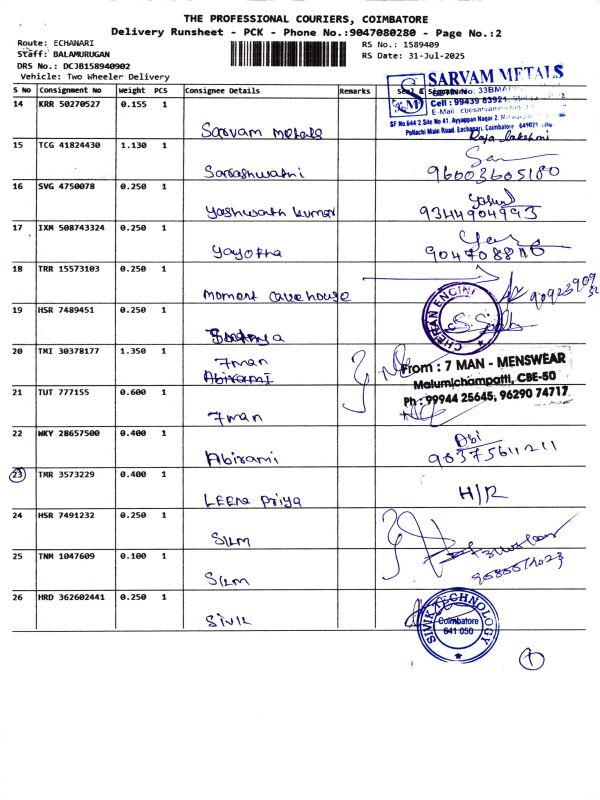 THE PROFESSIONAL COURIERS, COIMBATORE
Delivery Runsheet - PCK - Phone No.:9047080280 - Page No.:2
Route: ECHANARI
RS No.: 1589409
Staff: BALAMURUGAN
RS Date: 31-Jul-2025
DRS No.: DCJB158940902
Vehicle: Two Wheeler Delivery
S No Consignment No Weight PCS Consignee Details Remarks Seal & Signature
SARVAM METALS
Cell : 99439 83921
SF No.644 2 Site No 41, Ayyappan Nagar 2
Pollachi Main Road, Eachanari, Coimbatore 641021
14 KRR 50270527 0.155 1 Sarvam metals Raja lakshmi
15 TCG 41824430 1.130 1 Sarashwathi
16 SVG 4750078 0.250 1 yashwath kumar 9344904993
17 IXM 508743324 0.250 1
18 TRR 15573103 0.250 1 moment cave house
19 HSR 7489451 0.250 1
CHERAN ENGINE
20 TMI 30378177 1.350 1 7man
Abirami
From : 7 MAN - MENSWEAR
Malumichampatti, CBE-50
Ph : 99944 25645, 96290 74717
21 TUT 777155 0.600 1 7man
22 WKY 28657500 0.400 1 Abirami Abi
90375611211
23 TMR 3573229 0.400 1 Leena priya H/R
24 HSR 7491232 0.250 1 SILM
25 TNM 1047609 0.100 1 SILM
26 HRD 362602441 0.250 1
TECHNOLOGY
Coimbatore
641 050